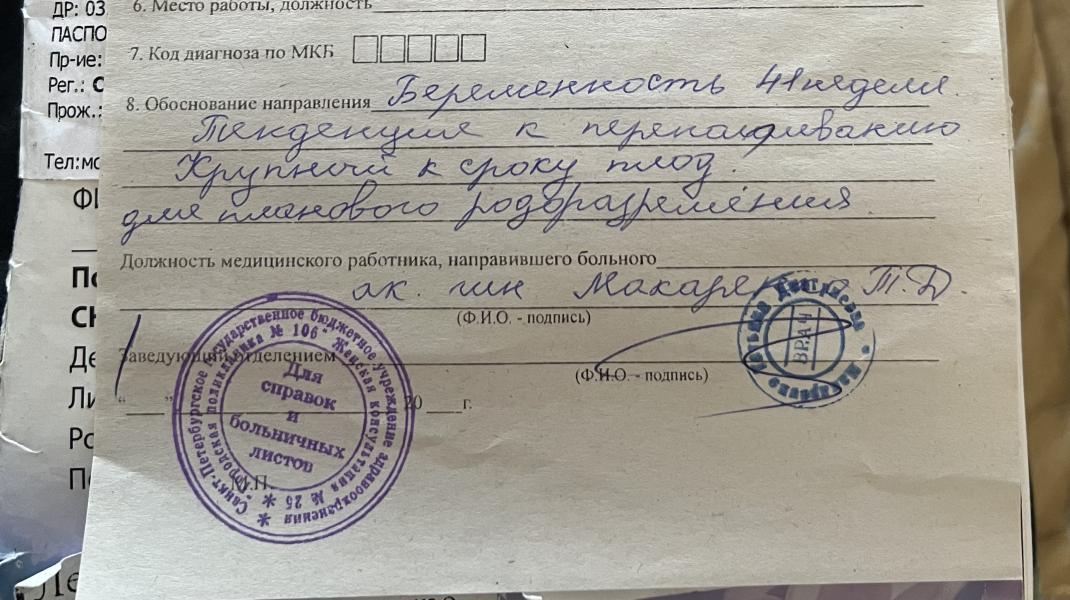 ДР: 03
ПАСПО
Пр-ие:
Рег.: С
Прож.:
Тел:мо
6. Место работы, должность
7. Код диагноза по МКБ
8. Обоснование направления Беременность 41 неделя.
Тенденция к перенашиванию
Крупный к сроку плод
для планового родоразрешения
Должность медицинского работника, направившего больного
ак. гин Макаренко Т.Д.
(Ф.И.О. - подпись)
Заведующий отделением
(Ф.И.О. - подпись)
"___" 20 ___г.
М.П.
Санкт-Петербургское государственное бюджетное учреждение здравоохранения
"Городская поликлиника № 106" Женская консультация № 25
Для
справок
и
больничных
листов
ВРАЧ
По
Де
Ли
Ро